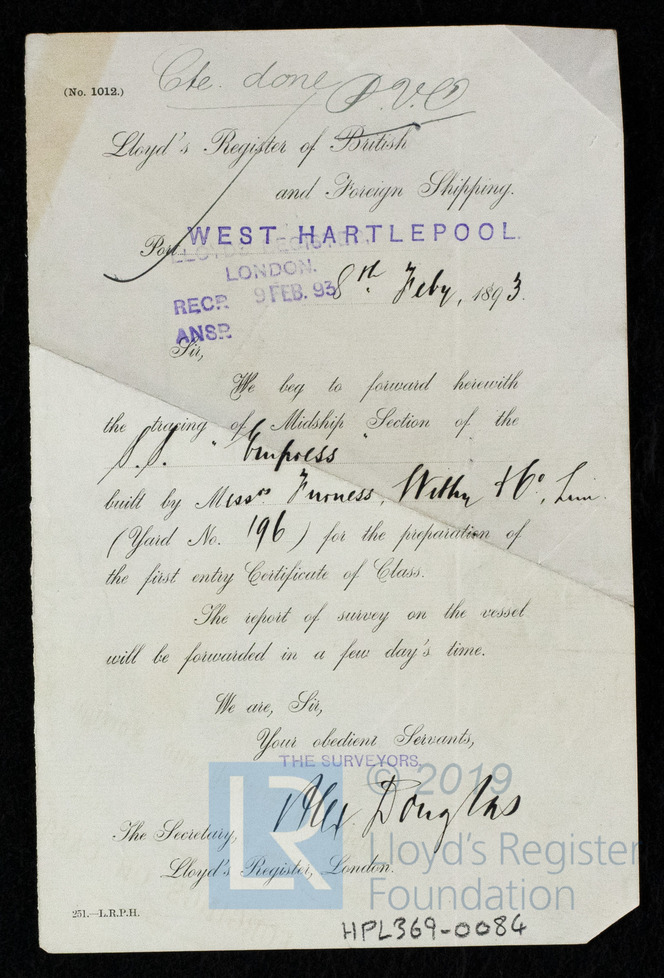 Cte. done
(No. 1012.)
Lloyd's Register of British
and Foreign Shipping.
Port WEST HARTLEPOOL.
LLOYD'S REGISTER
LONDON.
RECR 9 FEB. 93
8st. Feby, 1893.
ANSR
Sir,
We beg to forward herewith
the tracing of Midship Section of the
S.S. "Empress"
built by Messrs Furness, Withy & Co, Lim.
(Yard No. 196) for the preparation of
the first entry Certificate of Class.
The report of survey on the vessel
will be forwarded in a few day's time.
We are, Sir,
Your obedient Servants,
THE SURVEYORS,
Alex Douglas
The Secretary,
Lloyd's Register, London.
251.—L.R.P.H.
HPL369-0084
LR
© 2019
Lloyd's Register
Foundation